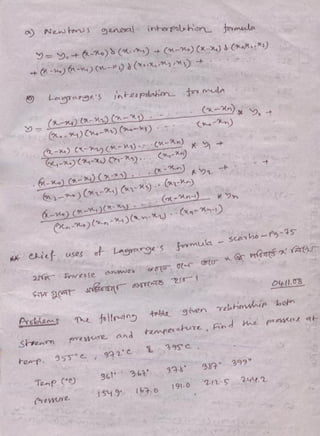 a) Newton's general interpolation formula
y = y₀ + (x-x₀) δ (x₀,x₁) + (x-x₀) (x-x₁) δ (x₀,x₁,x₂)
+ (x-x₀) (x-x₁) (x-x₂) δ (x₀,x₁,x₂,x₃) + ...
Lagrange's interpolation formula
y = (x-x₁) (x-x₂) (x-x₃) ... (x-xₙ) / (x₀-x₁) (x₀-x₂) (x₀-x₃) ... (x₀-xₙ) × y₀ +
(x-x₀) (x-x₂) (x-x₃) ... (x-xₙ) / (x₁-x₀) (x₁-x₂) (x₁-x₃) ... (x₁-xₙ) × y₁ +
(x-x₀) (x-x₁) (x-x₃) ... (x-xₙ) / (x₂-x₀) (x₂-x₁) (x₂-x₃) ... (x₂-xₙ) × y₂ + ... +
(x-x₀) (x-x₁) (x-x₂) ... (x-xₙ₋₁) / (xₙ-x₀) (xₙ-x₁) (xₙ-x₂) ... (xₙ-xₙ₋₁) × yₙ
Chief uses of Lagrange's formula - Scarborough - Pg-75
inverse answer x
04.11.08
Problems The following table gives relationship betn
steam pressure and temperature, Find the pressure at
temp. 355°C, 372°C & 395°C.
Temp (°C) 361° 367° 378° 387° 399°
Pressure 154.9 167.0 191.0 212.5 244.2